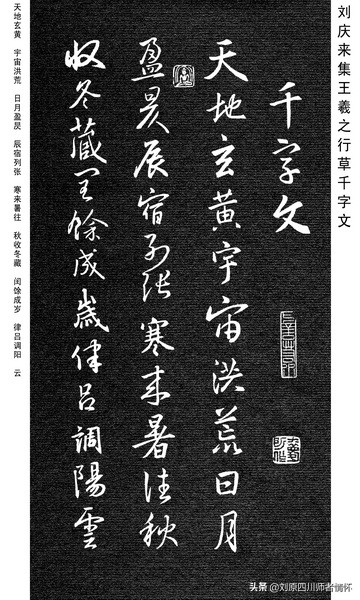 刘庆来集王羲之行草千字文
千字文
天地玄黃宇宙洪荒日月
盈昃辰宿列張寒來暑往秋
收冬藏閏餘成歲律呂調陽雲
天地玄黄 宇宙洪荒 日月盈昃 辰宿列张 寒来暑往 秋收冬藏 闰馀成岁 律吕调阳 云
头条 @刘原四川师者情怀